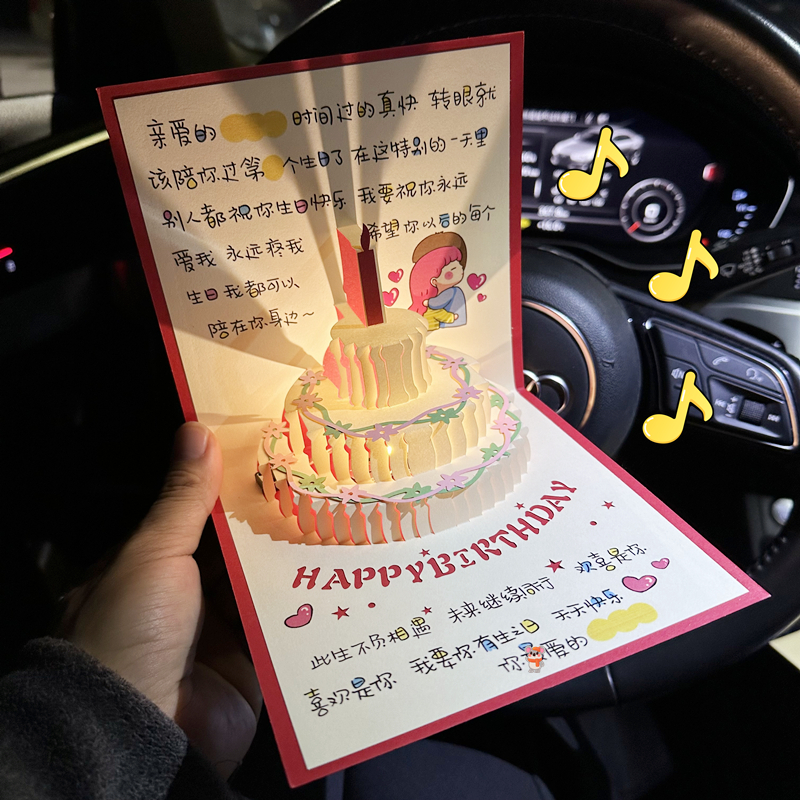 亲爱的 时间过的真快 转眼就
该陪你过第 个生日了 在这特别的一天里
别人都祝你生日快乐 我要祝你永远
爱我 永远疼我 希望你以后的每个
生日我都可以
陪在你身边~
HAPPY BIRTHDAY
此生不负相遇 未来继续同行 欢喜是你
喜欢是你 我要你有生之日 天天快乐
你 爱的